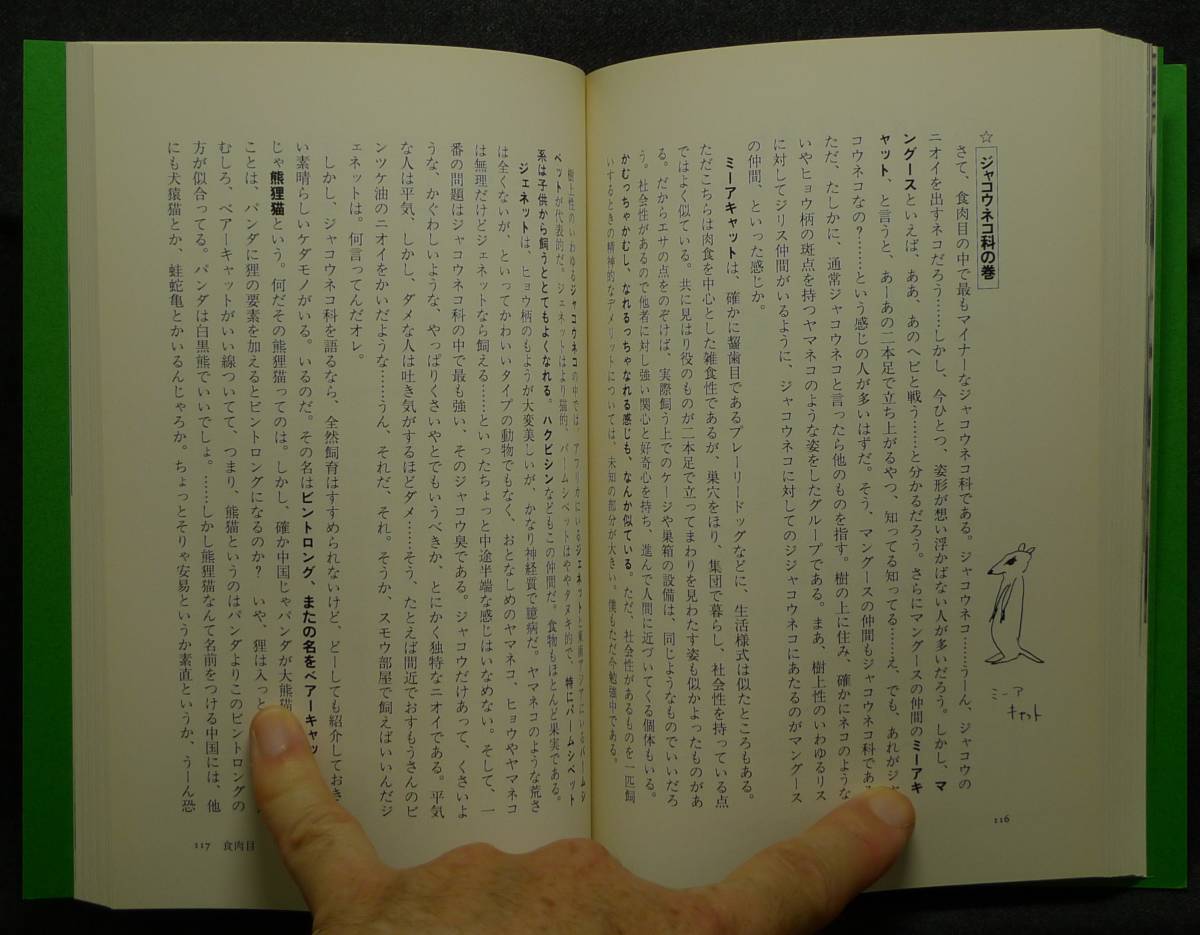 ☆ジャコウネコ科の巻
さて、食肉目の中で最もマイナーなジャコウネコ科である。ジャコウネコ……うーん、ジャコウの
ニオイを出すネコだろう……しかし、今ひとつ、姿形が想い浮かばない人が多いだろう。しかし、マ
ングースといえば、ああ、あのヘビと戦う……と分かるだろう。さらにマングースの仲間のミーアキ
ャット、と言うと、あーあの二本足で立ち上がるやつ、知ってる知ってる……え、でも、あれがジャ
コウネコなの?……という感じの人が多いはずだ。そう、マングースの仲間もジャコウネコ科である
ただ、たしかに、通常ジャコウネコと言ったら他のものを指す。樹の上に住み、確かにネコのような
いやヒョウ柄の斑点を持つヤマネコのような姿をしたグループである。まあ、樹上性のいわゆるリス
に対してジリス仲間がいるように、ジャコウネコに対してのジジャコウネコにあたるのがマングース
の仲間、といった感じか。
ミーアキャットは、確かに齧歯目であるプレーリードッグなどに、生活様式は似たところもある。
ただこちらは肉食を中心とした雑食性であるが、巣穴をほり、集団で暮らし、社会性を持っている点
ではよく似ている。共に見はり役のものが二本足で立ってまわりを見わたす姿も似かよったものがあ
る。だからエサの点をのぞけば、実際飼う上でのケージや巣箱の設備は、同じようなものでいいだろ
う。社会性があるので他者に対し強い関心と好奇心を持ち、進んで人間に近づいてくる個体もいる。
かむっちゃかむし、なれるっちゃなれる感じも、なんか似ている。ただ、社会性があるものを一匹飼
いするときの精神的なデメリットについては、未知の部分が大きい。僕もただ今勉強中である。
ミーア
キャット
116
樹上性のいわゆるジャコウネコの中では、アフリカにいるジェネットと東南アジアにいるパームシ
ベットが代表的だ。ジェネットはより猫的、パームシベットはややタヌキ的で、特にパームシベット
系は子供から飼うととてもよくなれる。ハクビシンなどもこの仲間だ。食物もほとんど果実である。
ジェネットは、ヒョウ柄のもようが大変美しいが、かなり神経質で臆病だ。ヤマネコのような荒さ
は全くないが、といってかわいいタイプの動物でもなく、おとなしめのヤマネコ、ヒョウやヤマネコ
は無理だけどジェネットなら飼える……といったちょっと中途半端な感じはいなめない。そして、一
番の問題はジャコウネコ科の中で最も強い、そのジャコウ臭である。ジャコウだけあって、くさいよ
うな、かぐわしいような、やっぱりくさいやとでもいうべきか、とにかく独特なニオイである。平気
な人は平気、しかし、ダメな人は吐き気がするほどダメ……そう、たとえば間近でおすもうさんのビ
ンツケ油のニオイをかいだような……うん、それだ、それ。そうか、スモウ部屋で飼えばいいんだジ
ェネットは。何言ってんだオレ。
しかし、ジャコウネコ科を語るなら、全然飼育はすすめられないけど、どーしても紹介しておき
い素晴らしいケダモノがいる。いるのだ。その名はビントロング、またの名をベアーキャッ
じゃ熊狸猫という。何だその熊狸猫ってのは。しかし、確か中国じゃパンダが大熊猫
ことは、パンダに狸の要素を加えるとビントロングになるのか? いや、狸は入っと
むしろ、ベアーキャットがいい線ついてて、つまり、熊猫というのはパンダよりこのビントロングの
方が似合ってる。パンダは白黒熊でいいでしょ。……しかし熊狸猫なんて名前をつける中国には、他
にも犬猿猫とか、蛙蛇亀とかいるんじゃろか。ちょっとそりゃ安易というか素直というか、うーん恐
117 食肉目